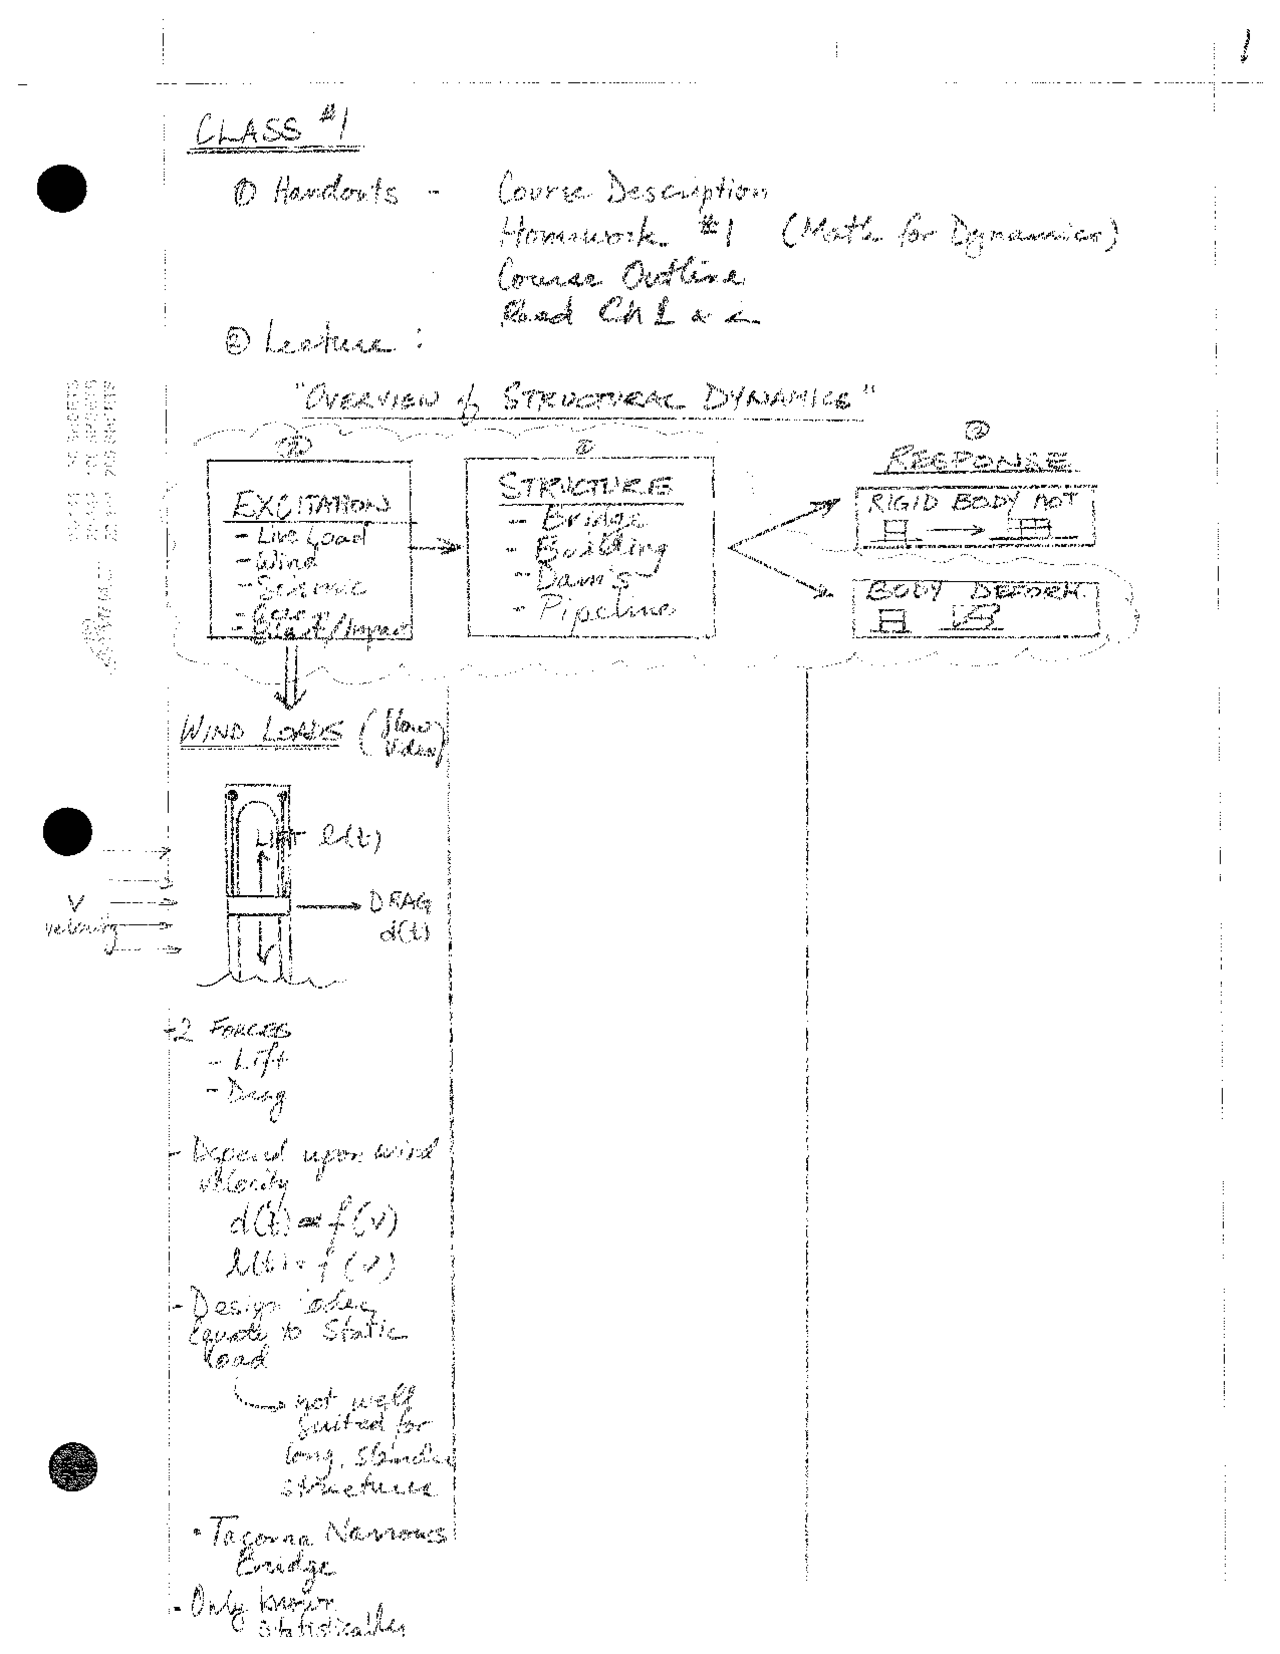 1
CLASS #1
① Handouts - Course Description
Homework #1 (Math for Dynamics)
Course Outline
Read Ch 1 & 2
② Lecture :
"OVERVIEW of STRUCTURAL DYNAMICS"
EXCITATION
- Live Load
- Wind
- Seismic
- Blast/Impact
STRUCTURE
- Bridge
- Building
- Dam's
- Pipeline
RESPONSE
RIGID BODY MOT
BODY DEFORM.
WIND LOADS (Show
Video)
LIFT l(t)
V
velocity
DRAG
d(t)
- 2 FORCES
- Lift
- Drag
- Depend upon wind
velocity
d(t) = f(v)
l(t) = f(v)
- Design
Equate to Static
Load
not well
suited for
long, slender
structure
• Tacoma Narrows
Bridge
- Only known
statistically